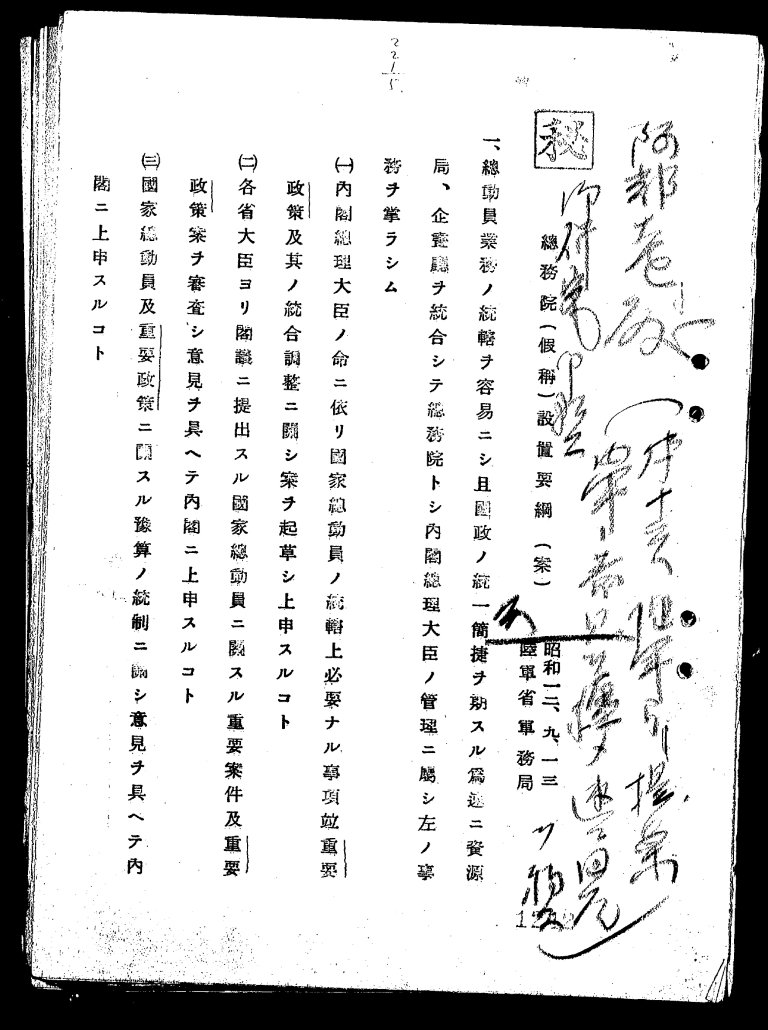 2215
秘
阿部老殿
總務院(假稱)設置要綱(案)
昭和一二、九、一三
陸軍省軍務局
一、總動員業務ノ統轄ヲ容易ニシ且國政ノ統一簡捷ヲ期スル爲速ニ資源
局、企畫廳ヲ統合シテ總務院トシ内閣總理大臣ノ管理ニ屬シ左ノ事
務ヲ掌ラシム
㈠内閣總理大臣ノ命ニ依リ國家總動員ノ統轄上必要ナル事項竝重要
政策及其ノ統合調整ニ關シ案ヲ起草シ上申スルコト
㈡各省大臣ヨリ閣議ニ提出スル國家總動員ニ關スル重要案件及重要
政策案ヲ審査シ意見ヲ具ヘテ内閣ニ上申スルコト
㈢國家總動員及重要政策ニ關スル豫算ノ統制ニ關シ意見ヲ具ヘテ内
閣ニ上申スルコト